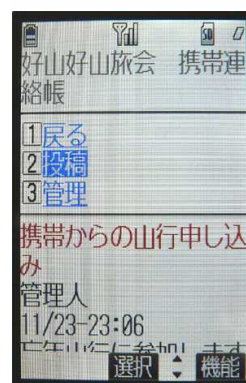 好山好山旅会 携帯連
絡帳
1戻る
2投稿
3管理
携帯からの山行申し込
み
管理人
11/23-23:06
忘年山行に参加します
選択 機能